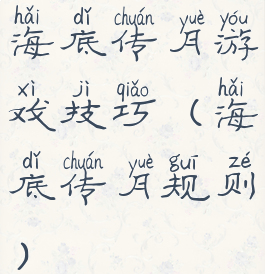 hǎi dǐ chuán yuè yóu
海 底 传 月 游
xì jì qiǎo hǎi
戏 技 巧 （ 海
dǐ chuán yuè guī zé
底 传 月 规 则
）